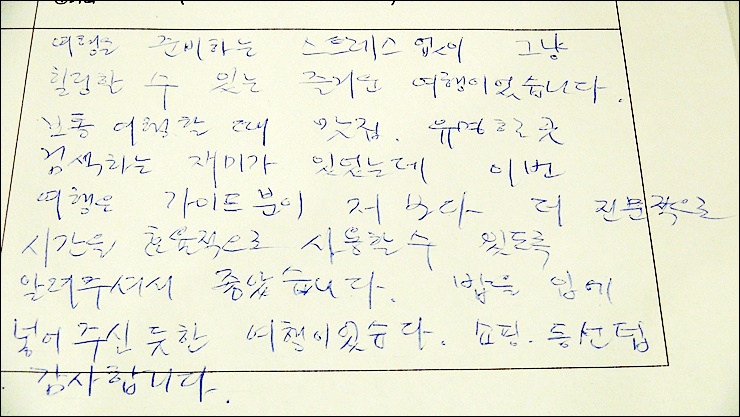 여행을 준비하는 스트레스 없이 그냥
힐링할 수 있는 즐거운 여행이었습니다.
보통 여행할 때 맛집. 유명한 곳
검색하는 재미가 있었는데 이번
여행은 가이드분이 저 보다 더 전문적으로
시간을 효율적으로 사용할 수 있도록
알려주셔서 좋았습니다. 밥을 입에
넣어 주신 듯한 여행이었습니다. 쇼핑. 동선팁
감사합니다.